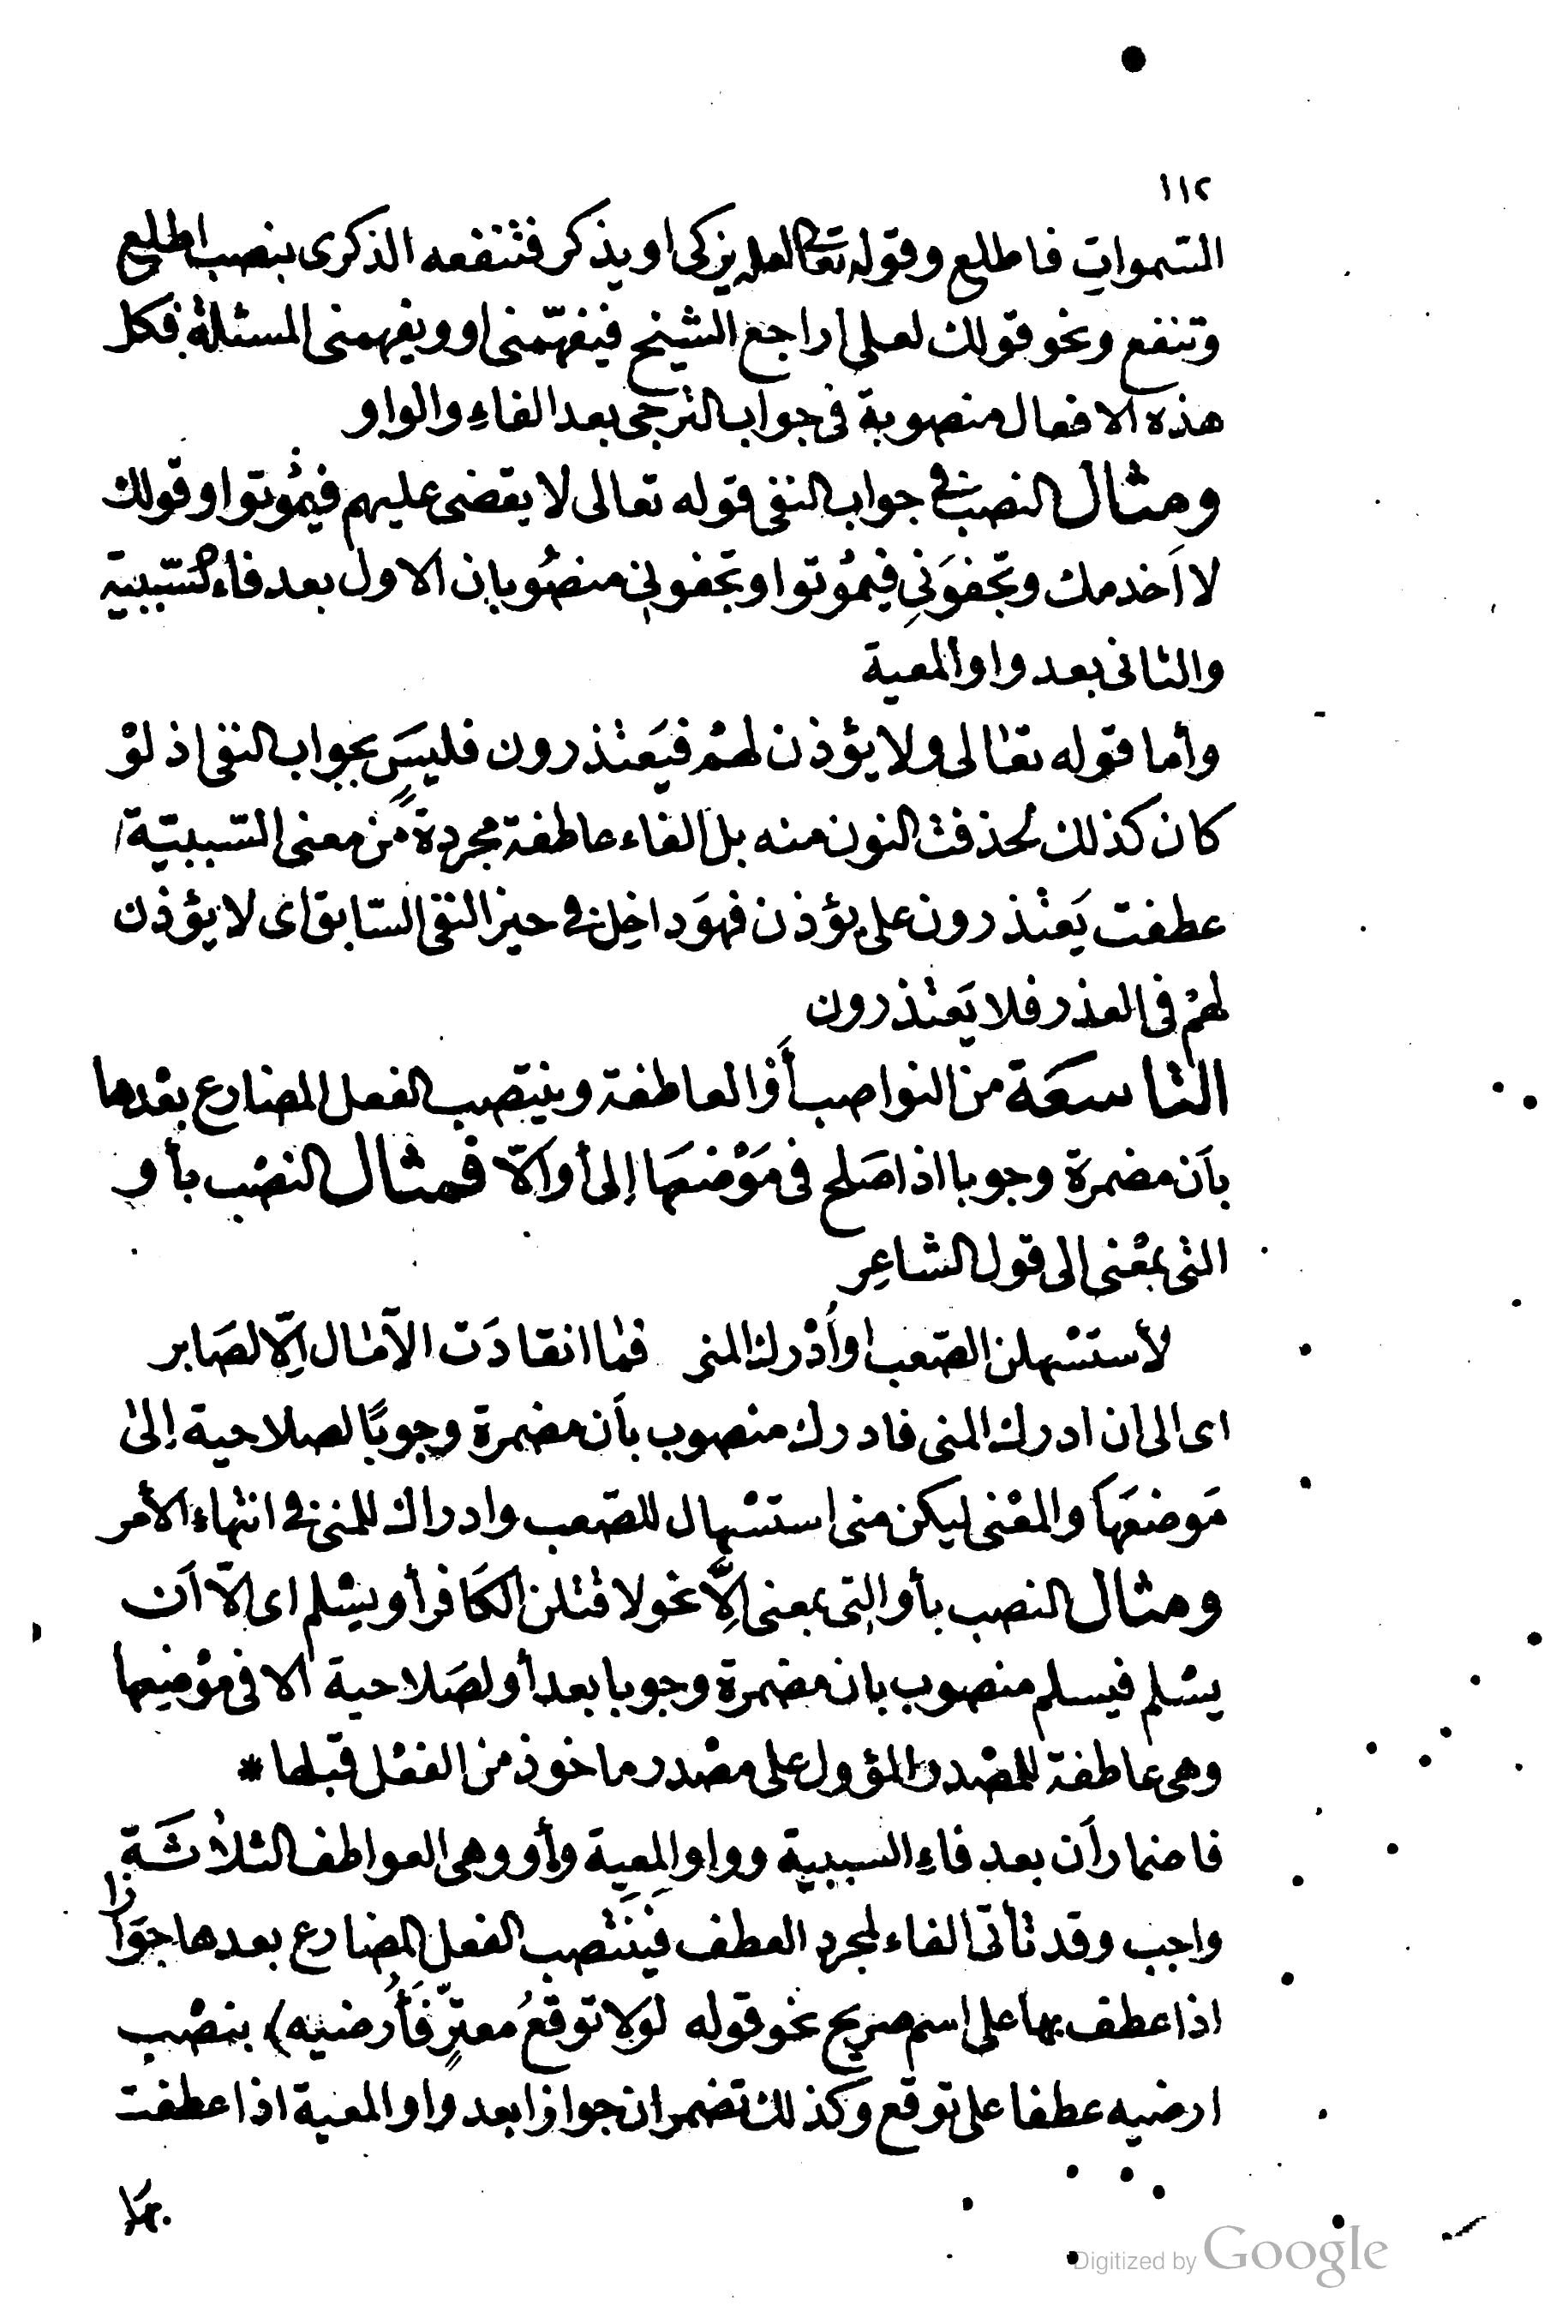 ١١٢
السّموات فاطلع وقوله تعالى لعله يزكى او يذكر فتنفعه الذكرى بنصب اطلع
وتنفع ونحو قولك لعلى اراجع الشيخ فيفهّمنى او ويفهمنى المسئلة فكل
هذه الافعال منصوبة فى جواب الترجى بعد الفاءِ والواو
ومثال النصب فى جواب النفى قوله تعالى لا يقضى عليهم فيمُوتوا وقولك
لا اَخدمك وتجفوَنى فيمُوتوا وتجفونى منصُوبان الاول بعد فاء السّببية
والثانى بعد واو المعية
وأما قوله تعالى ولا يؤذن لهمْ فيَعتذرون فليسَ بجواب النفى اذ لوْ
كان كذلك لحذفت النون منه بل الفاء عاطفة مجردةً منْ معنى السّببيّة
عطفت يَعتذرون على يؤذن فهوَ داخِل فى حيز النفى السّابق اى لا يؤذن
لهمْ فى العذر فلا يَعتذرون
التاسعَة من النواصب أَو العاطفة وينتصب الفعل المضارع بعْدها
بأَن مضمرة وجوبا اذا صَلح فى مَوْضعهَا إلى أو الاّ فمثال النصْب بأو
التى بمعْنى الى قول الشاعِر
لأستسْهلن الصّعب اَو اُدْرك المنى فما انقادَت الآمال إلاّ لصَابر
اى الى ان ادرك المنى فادرك منصوب بأَن مضمرة وجوبًا لصلاحية إلى
مَوضعهَا والمعْنى ليكن منى استسْهال للصّعب وادراك للمنى فى انتهاء الأمر
ومثال النصب بأو التى بمعنى إلاَّ نحو لاقتلن الكَافر أو يسْلم اى الاّ اَن
يسْلم فيسلم منصوب بان مضمرة وجوبا بعد أو لصَلاحية الا فى موْضِعها
وهى عاطفة للمصْدر المؤول على مصْدر ماخوذ من الفعْل قبلها *
فاضمار اَن بعد فاءِ السببية وواو المعِية وأو وهى العواطف الثلاثَة
واجب وقد تأتى الفاء لمجرد العطف فيَنتَصب الفعل المضارع بعدها جوَازا
اذا عطف بها على اسم صريح نحو قوله لولا توقعُ معترٍّ فَأُرضيَه) بنصْب
ارضيه عطفا على توقع وكذلك تضمر ان جوازا بعد واو المعية اذا عطفت
بهَا
Digitized by Google